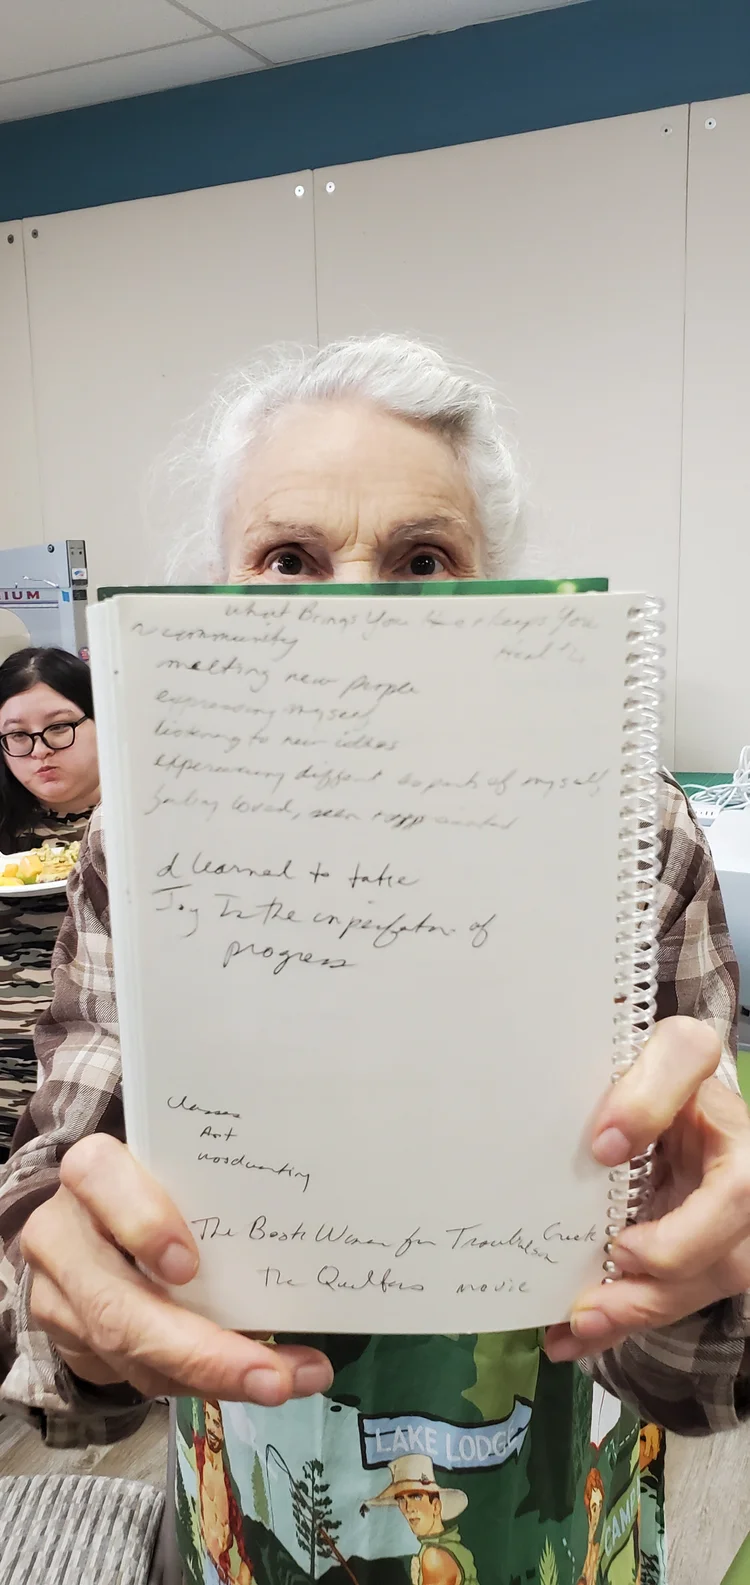 IUM
what Brings You Here Keeps You
community
meeting new people
expressing myself
listening to new ideas
experiencing different aspects of myself
feeling loved, seen + appreciated
I learned to take
Joy In the imperfection of
progress
classes
Art
woodworking
The Book Woman from Troublesome Creek
The Quilters movie
LAKE LODGE
CAMP